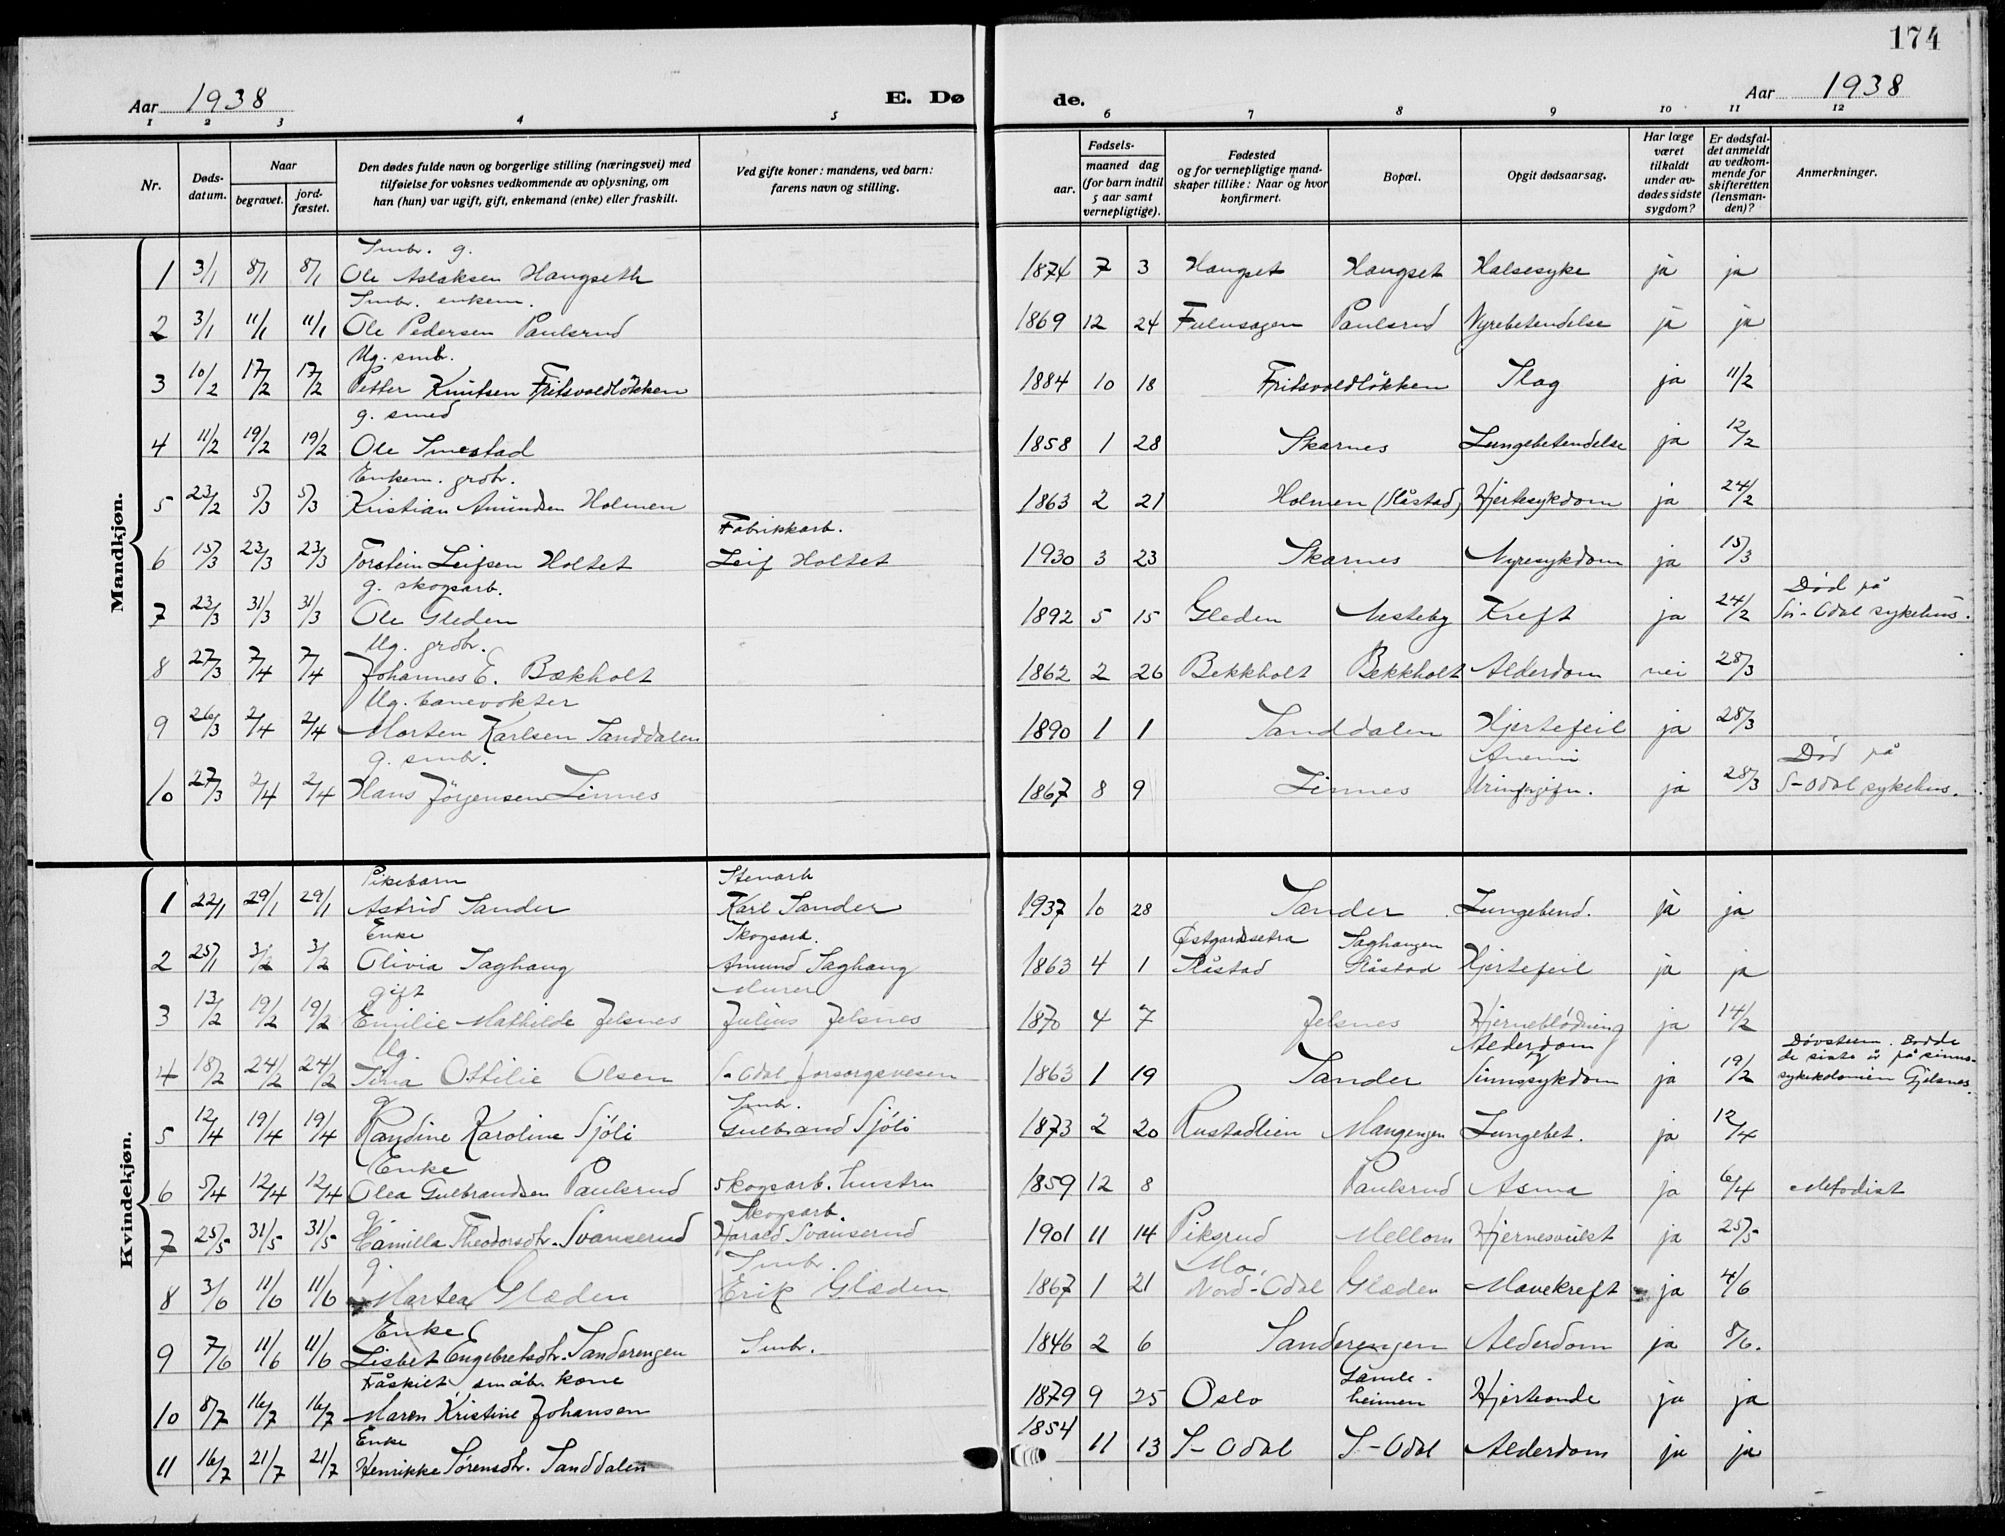 174
Aar 1938 E. Dø de. Aar 1938
1 2 3 4 5 6 7 8 9 10 11 12
Nr.
Døds-
datum.
Naar
begravet.
jord-
fæstet.
Den dødes fulde navn og borgerlige stilling (næringsvei) med
tilføielse for voksnes vedkommende av oplysning, om
han (hun) var ugift, gift, enkemand (enke) eller fraskilt.
Ved gifte koner: mandens, ved barn:
farens navn og stilling.
Fødsels-
aar.
maaned dag
(for barn indtil
5 aar samt
vernepligtige).
Fødested
og for vernepligtige mand-
skaper tillike: Naar og hvor
konfirmert.
Bopæl.
Opgit dødsaarsag.
Har læge
været
tilkaldt
under av-
dødes sidste
sygdom?
Er dødsfal-
det anmeldt
av vedkom-
mende for
skifteretten
(lensman-
den)?
Anmerkninger.
Mandkjøn.
Smbr. g.
1 3/1 8/1 8/1 Ole Aslaksen Haugseth 1874 7 3 Haugset Haugset Halsesyke ja ja
Smbr. enkem.
2 3/1 11/1 11/1 Ole Pedersen Paulsrud 1869 12 24 Fulusagen Paulsrud Nyrebetendelse ja ja
Ug. smbr.
3 10/2 17/2 17/2 Petter Knutsen Fritsvoldløkken 1884 10 18 Fritsvoldløkken Slag ja 11/2
g. smed
4 11/2 19/2 19/2 Ole Smestad 1858 1 28 Skarnes Lungebetendelse ja 12/2
Enkem. grdbr.
5 23/2 5/3 5/3 Kristian Amundsen Holmen 1863 2 21 Holmen (Slåstad) Hjertesykdom ja 24/2
Fabrikkarb.
6 15/3 23/3 23/3 Torstein Leifsen Holtet Leif Holtet 1930 3 23 Skarnes Nyresykdom ja 15/3
g. skogsarb. Død på
7 23/3 31/3 31/3 Ole Gleden 1892 5 15 Gleden Nesteby Kreft ja 24/2 Sør-Odal sykehus.
Ug. grdbr.
8 27/3 7/4 7/4 Johannes E. Bækholt 1862 2 26 Bekkholt Bekkholt Alderdom nei 28/3
Ug. banevokter
9 26/3 2/4 2/4 Morten Karlsen Sanddalen 1890 1 1 Sanddalen Hjertefeil ja 28/3
g. smbr. Anemi Død på
10 27/3 2/4 2/4 Hans Jørgensen Linnes 1867 8 9 Linnes Urinforgifn. ja 28/3 S-Odal sykehus.
Kvindekjøn.
Pikebarn Stenarb
1 22/1 29/1 29/1 Astrid Sander Karl Sander 1937 10 28 Sander Lungebend. ja ja
Enke Skogsarb. Østgardsetra Saghaugen
2 25/1 3/2 3/2 Olivia Saghaug Amund Saghaug 1863 4 1 Slåstad Slåstad Hjertefeil ja ja
gift Murer
3 13/2 19/2 19/2 Emilie Mathilde Jelsnes Julius Jelsnes 1870 4 7 Jelsnes Hjerneblødning ja 14/2
Ug. Alderdom Døvstum. Bodde
de siste år på sinns-
4 18/2 24/2 24/2 Tina Ottilie Olsen S-Odal forsorgsvesen 1863 1 19 Sander Sinnssykdom ja 19/2 sykekolonien Gjelsnes
g Smbr.
5 12/4 19/4 19/4 Randine Karoline Sjøli Gulbrand Sjøli 1873 2 20 Rustadlien Maugenzen Lungebet. ja 12/4
Enke
6 5/4 12/4 12/4 Olea Gulbrandsen Paulsrud skogsarb. hustru 1859 12 8 Paulsrud Asma ja 6/4 Metodist
g. Skogsarb.
7 25/5 31/5 31/5 Camilla Theodorsdtr. Svanserud Harald Svanserud 1901 11 14 Piksrud Mellom Hjernesvulst ja 25/5
g. Smbr. Mo,
8 3/6 11/6 11/6 Martea Glæden Erik Glæden 1867 1 21 Nord-Odal Glæden Mavekreft ja 4/6
Enke
9 7/6 11/6 11/6 Lisbet Engebretsdtr. Sanderengen Smbr. 1846 2 6 Sanderengen Alderdom ja 8/6.
Fråskilt småbr. kone Gamle-
10 8/7 16/7 16/7 Maren Kristine Johansen 1879 9 25 Oslo heimen Hjerteonde ja ja
Enke 1854
11 16/7 21/7 21/7 Henrikke Sørensdtr. Sanddalen 11 13 S-Odal S-Odal Alderdom ja ja